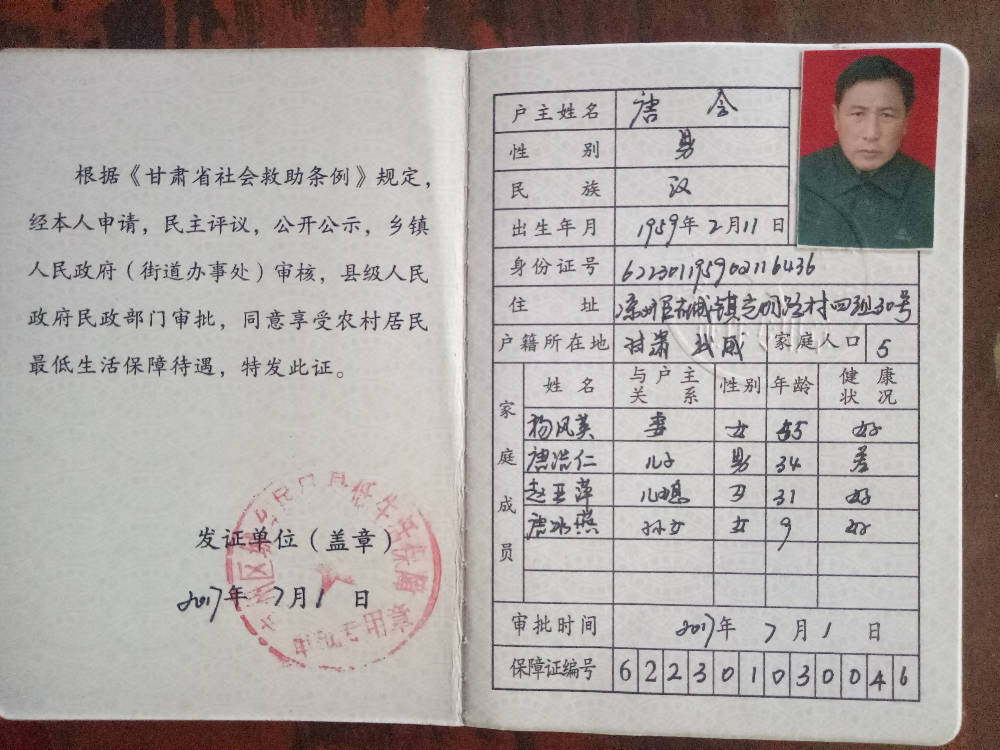 根据《甘肃省社会救助条例》规定，
经本人申请，民主评议，公开公示，乡镇
人民政府（街道办事处）审核，县级人民
政府民政部门审批，同意享受农村居民
最低生活保障待遇，特发此证。
发证单位（盖章）
2017年7月1日
审批专用章
户主姓名 唐会
性别 男
民族 汉
出生年月 1959年2月11日
身份证号 622301195902116436
住址 凉州区 镇 村四组30号
户籍所在地 甘肃 武威 家庭人口 5
家庭成员
姓名 与户主关系 性别 年龄 健康状况
杨风英 妻 女 55 好
唐浩仁 儿子 男 34 差
赵亚萍 儿媳 31 好
唐冰燕 孙女 女 9 好
审批时间 2017年7月1日
保障证编号 6223010300046